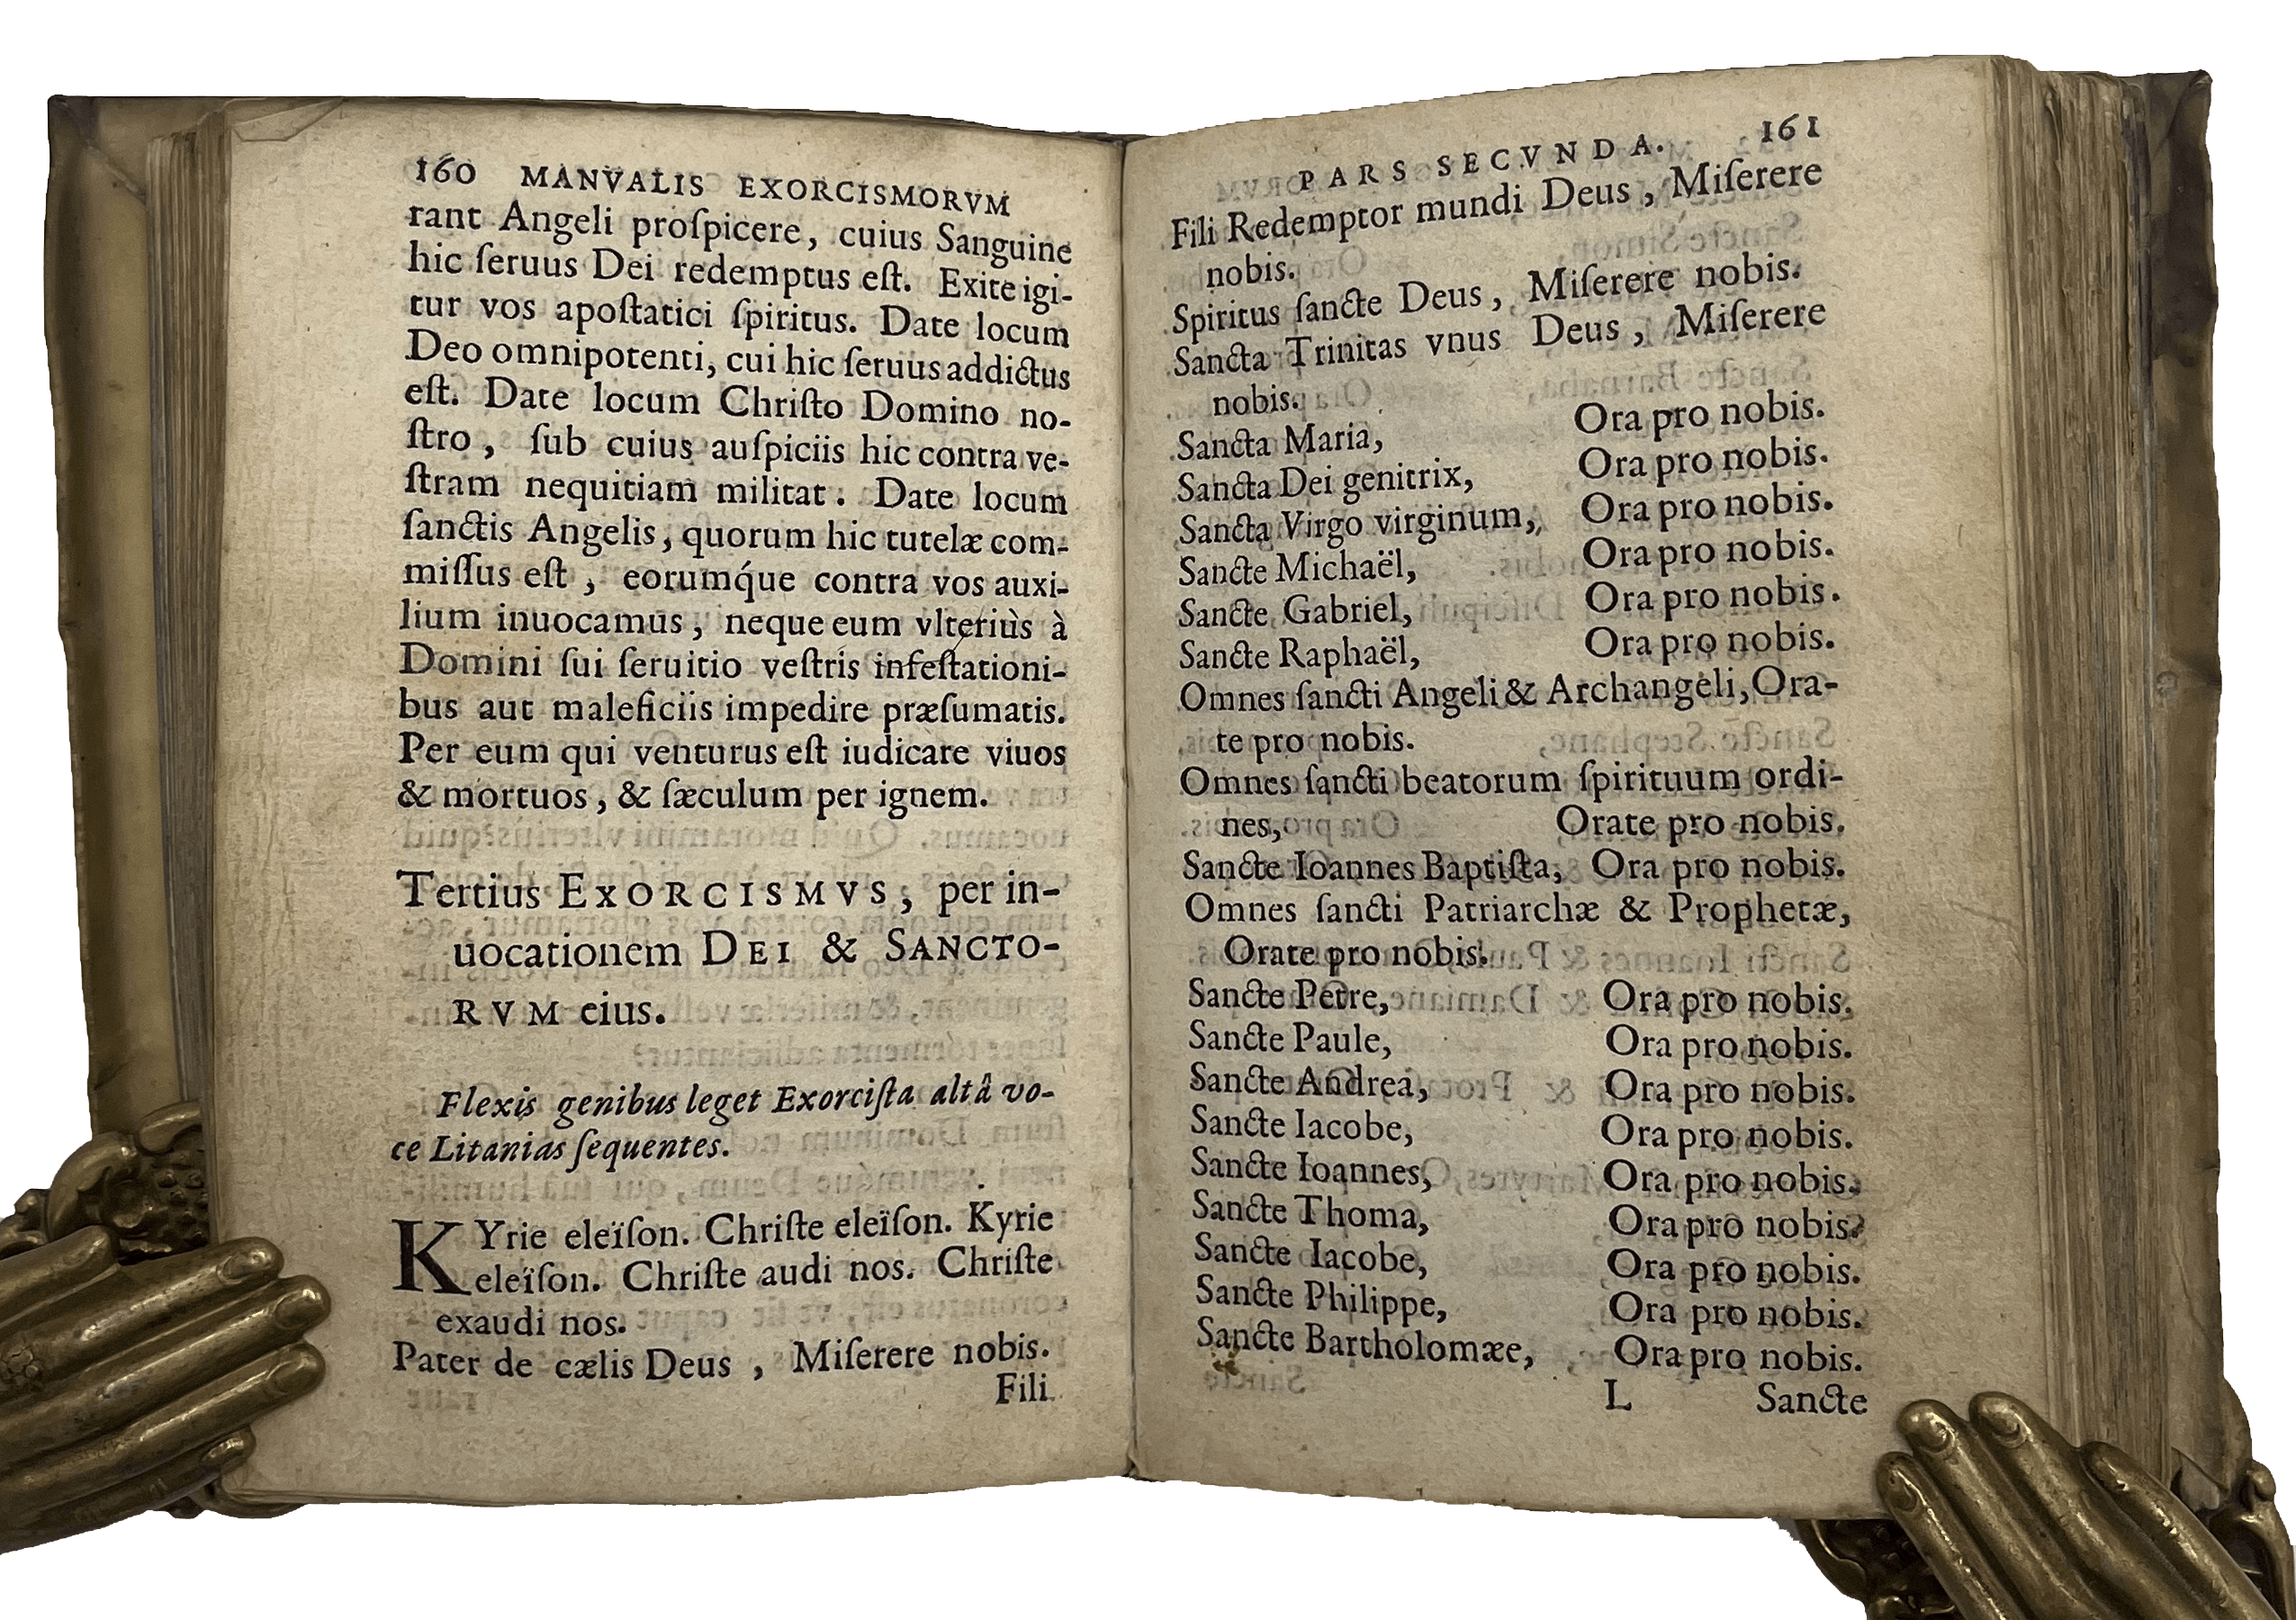 160 MANVALIS EXORCISMORVM
rant Angeli proſpicere, cuius Sanguine
hic ſeruus Dei redemptus eſt. Exite igi-
tur vos apoſtatici ſpiritus. Date locum
Deo omnipotenti, cui hic ſeruus addictus
eſt. Date locum Chriſto Domino no-
ſtro, ſub cuius auſpiciis hic contra ve-
ſtram nequitiam militat. Date locum
ſanctis Angelis, quorum hic tutelæ com-
miſſus eſt, eorumq́ue contra vos auxi-
lium inuocamus, neque eum vlteriùs à
Domini ſui ſeruitio veſtris infeſtationi-
bus aut maleficiis impedire præſumatis.
Per eum qui venturus eſt iudicare viuos
& mortuos, & ſæculum per ignem.
Tertius EXORCISMVS, per in-
uocationem DEI & SANCTO-
RVM eius.
Flexis genibus leget Exorciſta altâ vo-
ce Litanias ſequentes.
KYrie eleïſon. Chriſte eleïſon. Kyrie
eleïſon. Chriſte audi nos. Chriſte
exaudi nos.
Pater de cælis Deus, Miſerere nobis.
Fili
PARS SECVNDA. 161
Fili Redemptor mundi Deus, Miſerere
nobis.
Spiritus ſancte Deus, Miſerere nobis.
Sancta Trinitas vnus Deus, Miſerere
nobis.
Sancta Maria, Ora pro nobis.
Sancta Dei genitrix, Ora pro nobis.
Sancta Virgo virginum, Ora pro nobis.
Sancte Michaël, Ora pro nobis.
Sancte Gabriel, Ora pro nobis.
Sancte Raphaël, Ora pro nobis.
Omnes ſancti Angeli & Archangeli, Ora-
te pro nobis.
Omnes ſancti beatorum ſpirituum ordi-
nes, Orate pro nobis.
Sancte Ioannes Baptiſta, Ora pro nobis.
Omnes ſancti Patriarchæ & Prophetæ,
Orate pro nobis.
Sancte Petre, Ora pro nobis.
Sancte Paule, Ora pro nobis.
Sancte Andrea, Ora pro nobis.
Sancte Iacobe, Ora pro nobis.
Sancte Ioannes, Ora pro nobis.
Sancte Thoma, Ora pro nobis.
Sancte Iacobe, Ora pro nobis.
Sancte Philippe, Ora pro nobis.
Sancte Bartholomæe, Ora pro nobis.
L Sancte